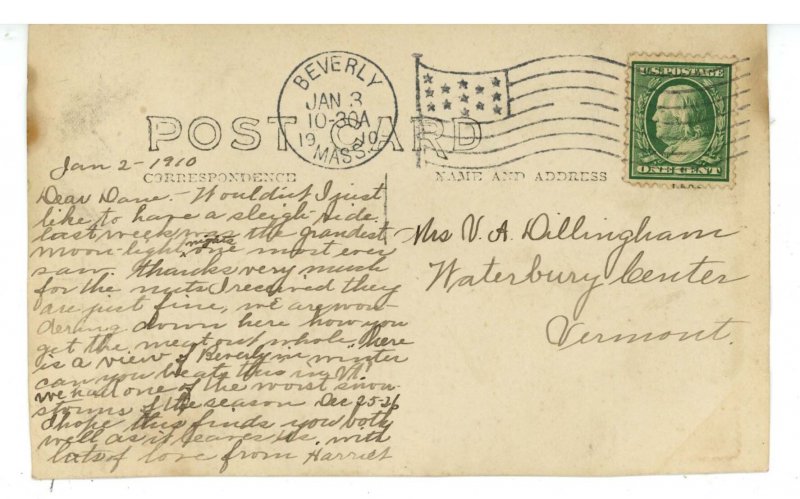 BEVERLY
JAN 3
10-30A
1910
MASS.
U.S. POSTAGE
ONE CENT
POST CARD
CORRESPONDENCE
NAME AND ADDRESS
Jan 2-1910
Dear Dane. - Wouldn't I just
like to have a sleigh-ride.
last week was the grandest
moon-light nights one most ever
saw. thanks very much
for the nuts I received they
are just fine, we are won-
dering down here how you
get the meat out whole. here
is a view of Beverly in winter
can you beat this in Vt.
we had one of the worst snow
storms of the season Dec 25-26
I hope this finds you both
well as it leaves us. with
lots of love from Harriet
Mrs V. A. Dillingham
Waterbury Center
Vermont.